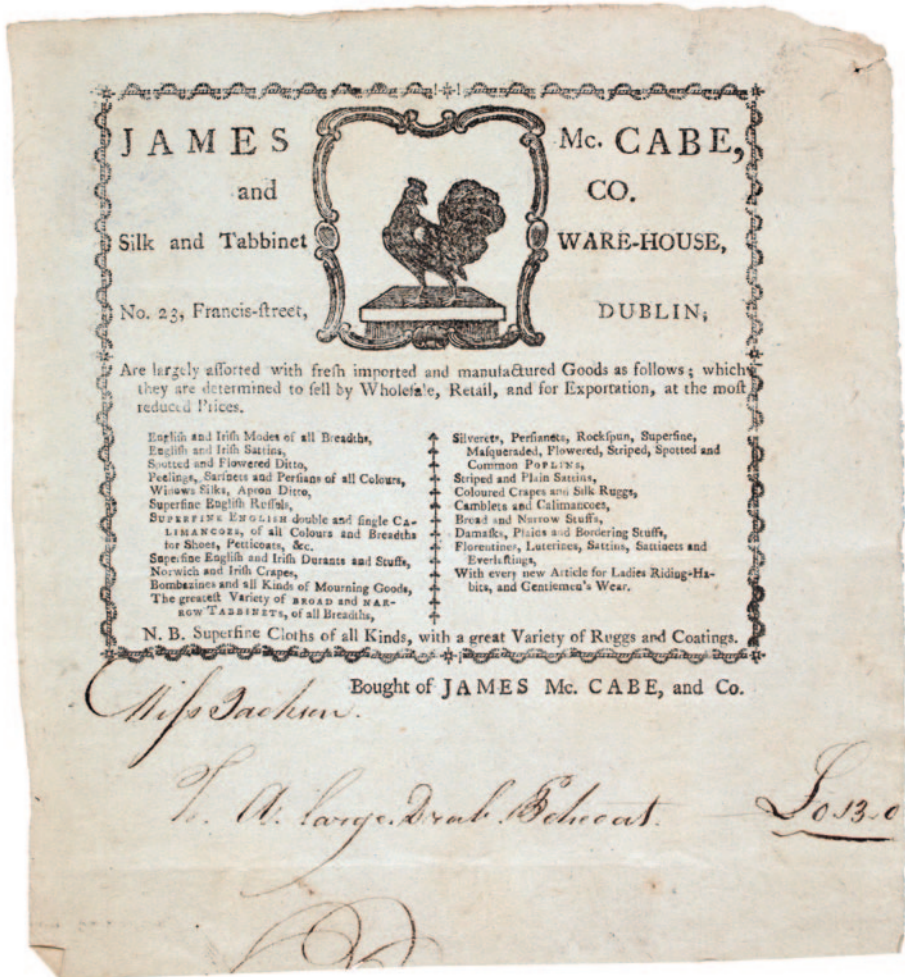 JAMES Mc. CABE,
and CO.
Silk and Tabbinet WARE-HOUSE,
No. 23, Francis-ſtreet, DUBLIN;
Are largely aſſorted with freſh imported and manufactured Goods as follows; which
they are determined to ſell by Wholeſale, Retail, and for Exportation, at the moſt
reduced Prices.
Engliſh and Iriſh Modes of all Breadths,
Engliſh and Iriſh Sattins,
Spotted and Flowered Ditto,
Peelings, Sarſnets and Perſians of all Colours,
Widows Silks, Apron Ditto,
Superfine Engliſh Ruſſels,
SUPERFINE ENGLISH double and ſingle CA-
LIMANCOES, of all Colours and Breadths
for Shoes, Petticoats, &c.
Superfine Engliſh and Iriſh Durants and Stuffs,
Norwich and Iriſh Crapes,
Bombazines and all Kinds of Mourning Goods,
The greateſt Variety of BROAD and NAR-
ROW TABBINETS, of all Breadths,
Silverets, Perſianets, Rockſpun, Superfine,
Maſqueraded, Flowered, Striped, Spotted and
Common POPLINS,
Striped and Plain Sattins,
Coloured Crapes and Silk Ruggs,
Camblets and Calimancoes,
Broad and Narrow Stuffs,
Damaſks, Plaids and Bordering Stuffs,
Florentines, Luterines, Sattins, Sattinets and
Everlaſtings,
With every new Article for Ladies Riding-Ha-
bits, and Gentlemen's Wear.
N. B. Superfine Cloths of all Kinds, with a great Variety of Ruggs and Coatings.
Bought of JAMES Mc. CABE, and Co.
Miſs Jackson.
A large Drab £0 13-0